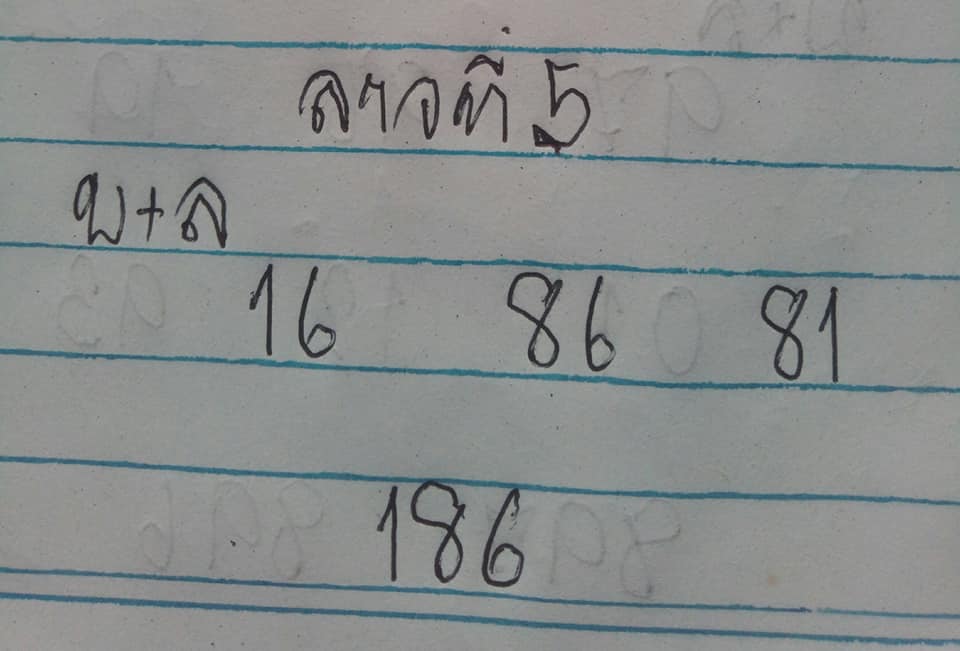 ลาวที่ 5
บ+ล
16 86 81
186